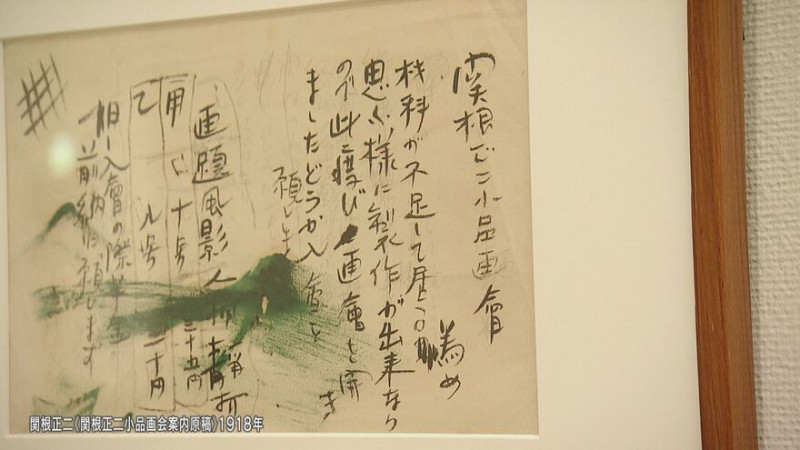 関根正二小品画會
材料が不足して居る為め
思ふ様に製作が出来なら
ので此度び画會を開き
ましたどうか入會を
願します
画題風景人物
甲 十号 三十五円
乙 八号 二十円
但し入會の際半金
前納に願います
関根正二《関根正二小品画会案内原稿》1918年